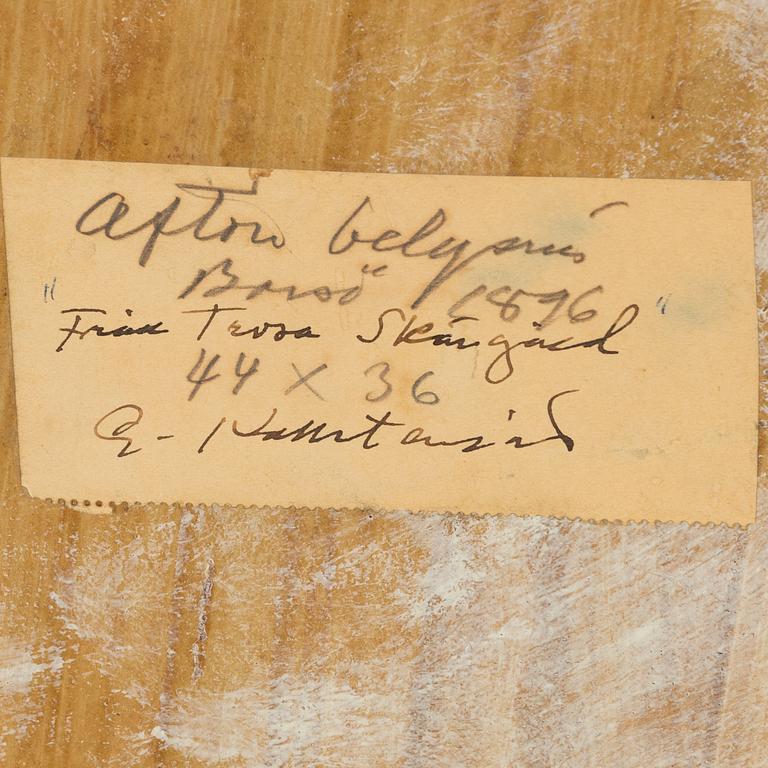 Afton belysning
Borsö 1896
"Från Trosa Skärgård"
44 X 36
G-